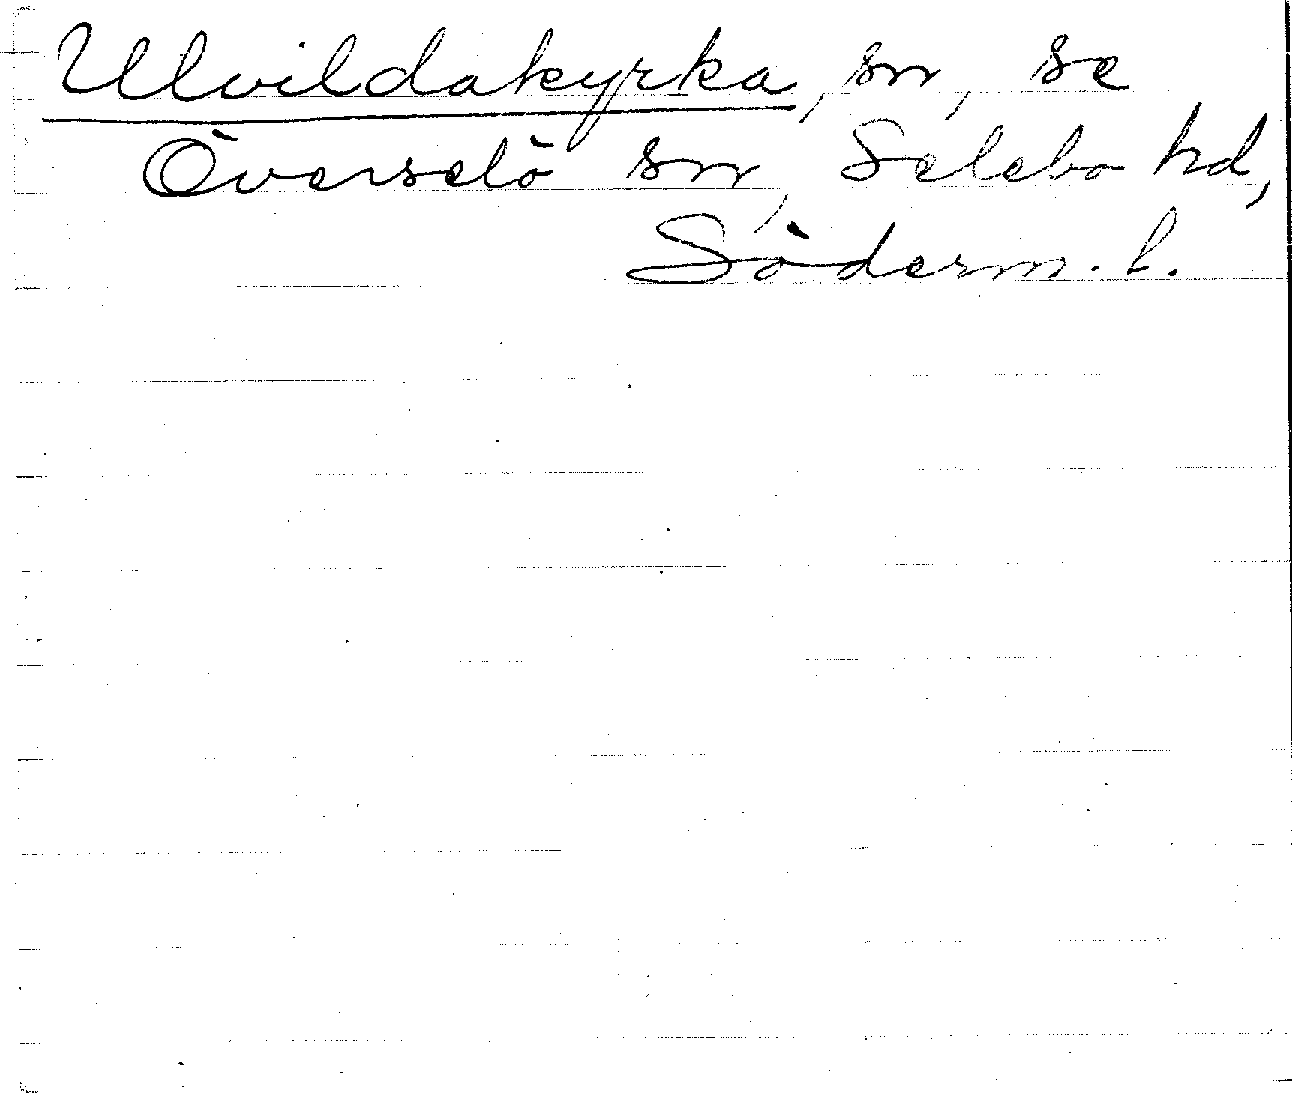 Ulvildakyrka, sn, se
Överselö sn, Selebo hd,
Söderm. l.